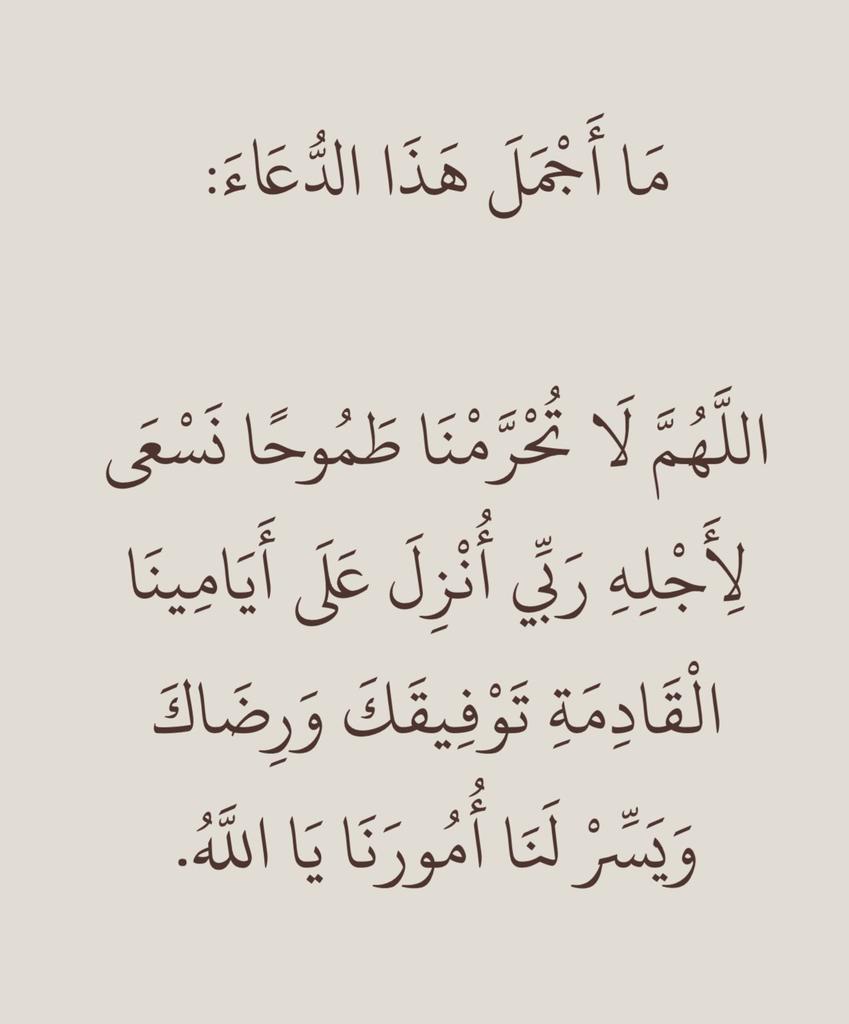 مَا أَجْمَلَ هَذَا الدُّعَاءَ:
اللَّهُمَّ لَا تُحْرَّمْنَا طَمُوحًا نَسْعَى
لِأَجْلِهِ رَبِّي أُنْزِلَ عَلَى أَيَامِينَا
الْقَادِمَةِ تَوْفِيقَكَ وَرِضَاكَ
وَيَسِّرْ لَنَا أُمُورَنَا يَا اللَّهُ.